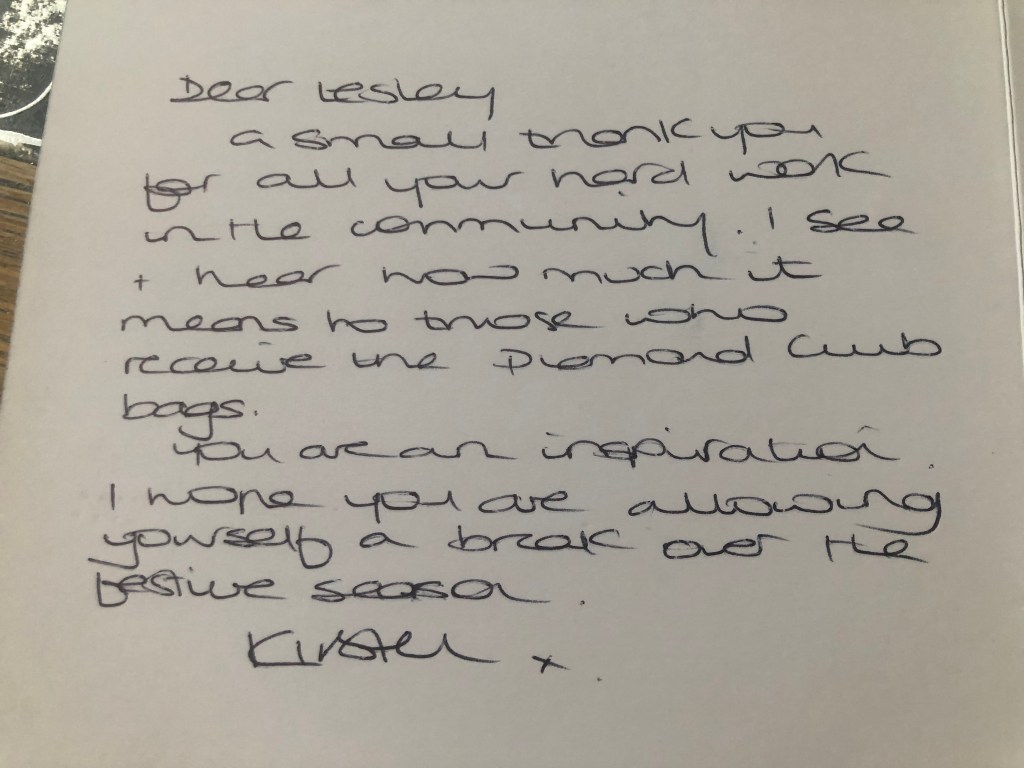 Dear Lesley
a small thank you
for all your hard work
in the community. I see
+ hear how much it
means to those who
receive the Diamond Club
bags.
You are an inspiration.
I hope you are allowing
yourself a break over the
festive season.
Kirsten x